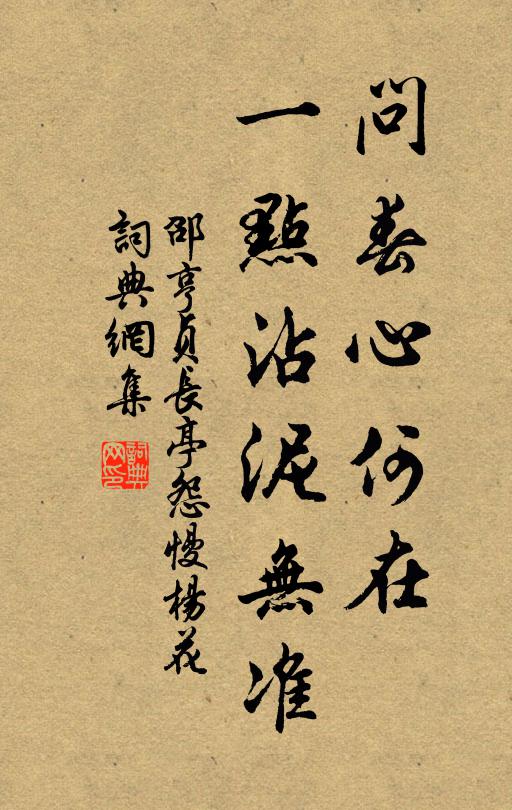 問春心何在
一點沾泥無准
邵亨貞長亭怨慢楊花
詞典網集
詞典網印